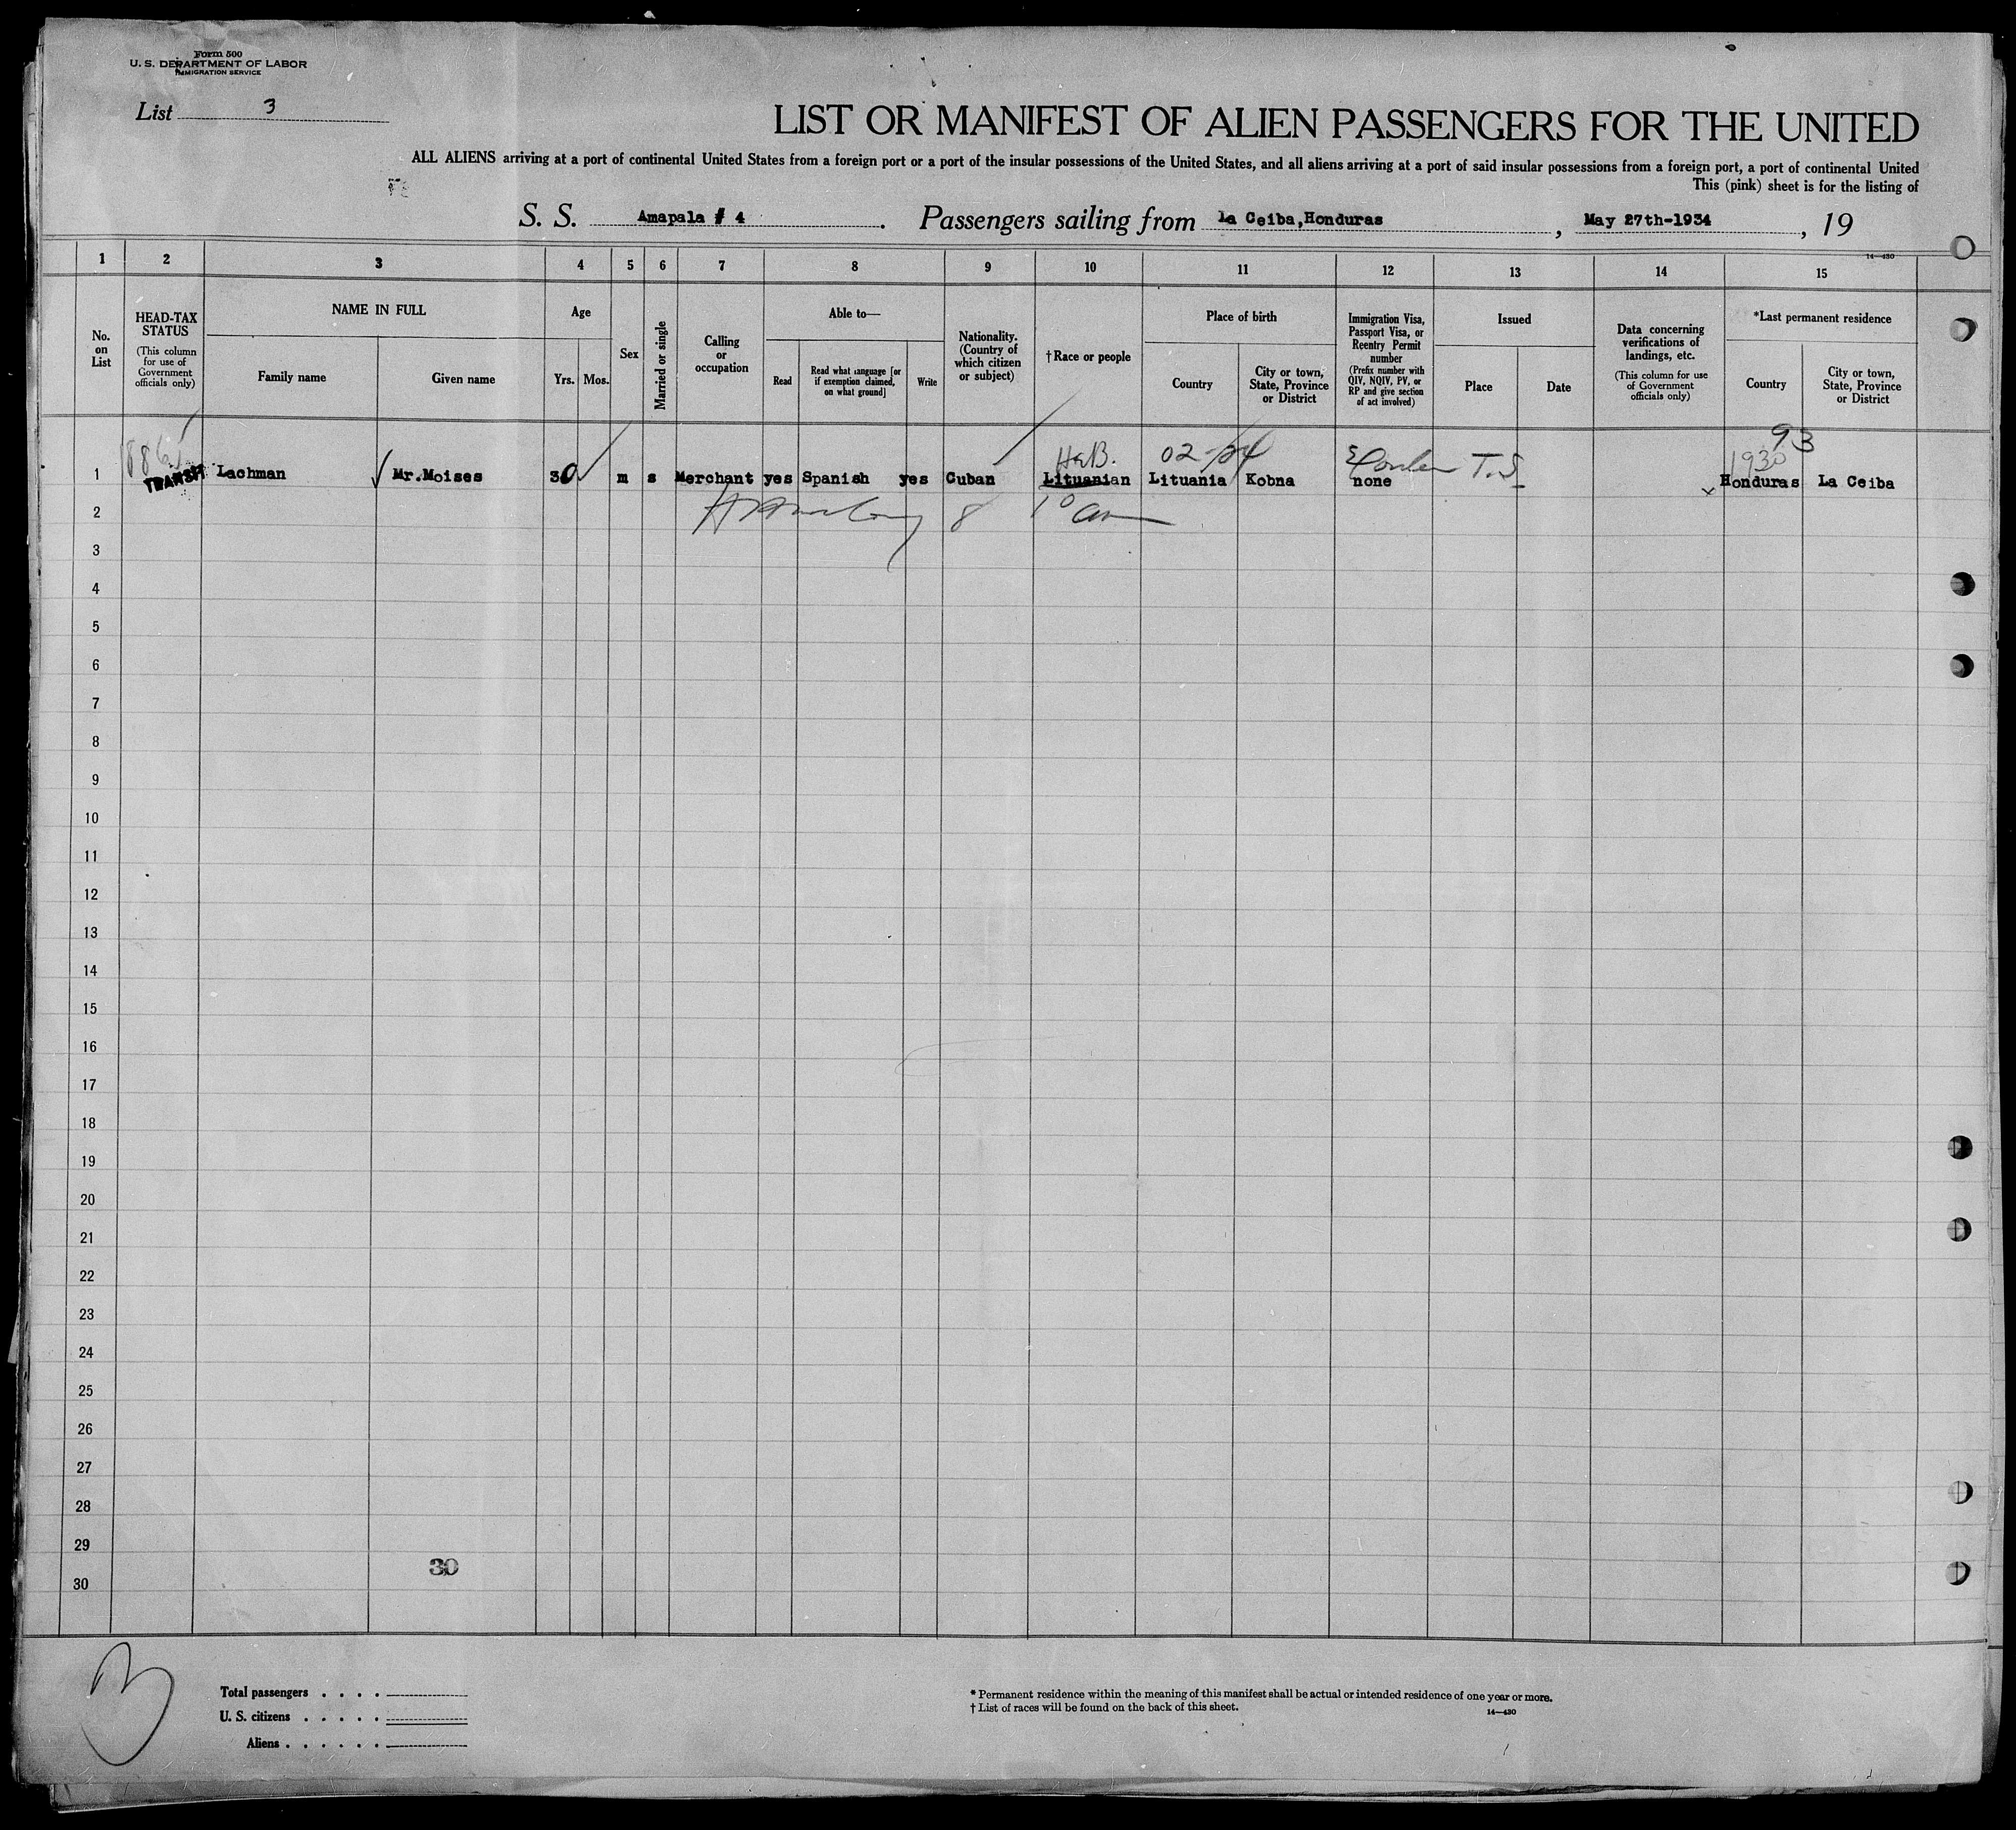 Form 500
U. S. DEPARTMENT OF LABOR
IMMIGRATION SERVICE
List 3
LIST OR MANIFEST OF ALIEN PASSENGERS FOR THE UNITED
ALL ALIENS arriving at a port of continental United States from a foreign port or a port of the insular possessions of the United States, and all aliens arriving at a port of said insular possessions from a foreign port, a port of continental United
This (pink) sheet is for the listing of
S. S. Amapala # 4 . Passengers sailing from La Ceiba, Honduras , May 27th-1934 , 19
14—430
1 2 3 4 5 6 7 8 9 10 11 12 13 14 15
No. on List
HEAD-TAX STATUS
(This column for use of Government officials only)
NAME IN FULL
Family name
Given name
Age
Yrs. Mos.
Sex
Married or single
Calling or occupation
Able to—
Read
Read what language [or if exemption claimed, on what ground]
Write
Nationality. (Country of which citizen or subject)
†Race or people
Place of birth
Country
City or town, State, Province or District
Immigration Visa, Passport Visa, or Reentry Permit number
(Prefix number with QIV, NQIV, PV, or RP and give section of act involved)
Issued
Place
Date
Data concerning verifications of landings, etc.
(This column for use of Government officials only)
*Last permanent residence
Country
City or town, State, Province or District
93
HeB. 02-24 T.S 1930
1 TRANSIT Lachman Mr. Moises 30 m s Merchant yes Spanish yes Cuban Lituanian Lituania Kobna none Honduras La Ceiba
2 8
3
4
5
6
7
8
9
10
11
12
13
14
15
16
17
18
19
20
21
22
23
24
25
26
27
28
29
30
30
Total passengers . . . .
U. S. citizens . . . . .
Aliens . . . . . .
* Permanent residence within the meaning of this manifest shall be actual or intended residence of one year or more.
† List of races will be found on the back of this sheet.
14—430